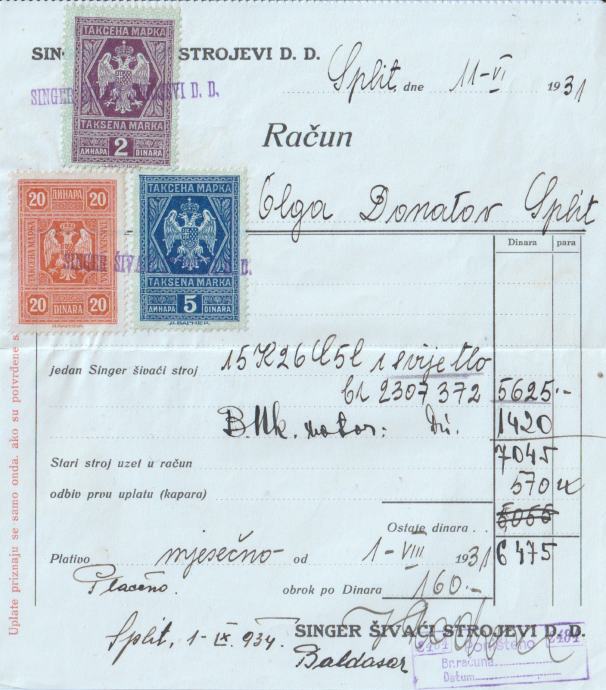 ТАКСЕНА МАРКА
TAKSENA MARKA
ДИНАРА 2 DINARA
SINGER STROJEVI D. D.
Split, dne 11-VI 1931
Račun
20 ДИНАРА 20
20 DINARA 20
ТАКСЕНА МАРКА
TAKSENA MARKA
ДИНАРА 5 DINARA
SINGER ŠIVAĆI D. D.
Olga Donatov Split
Dinara para
jedan Singer šivaći stroj 15K26 i svijetlo
2307372 5625.-
motor: Di. 1420
7045
Stari stroj uzet u račun
570
odbiv prvu uplatu (kapara)
Ostate dinara . .
Plativo mjesečno od 1-VIII 1931 6475
Plaćeno.
obrok po Dinara 160.-
Split, 1-IX 934.
SINGER ŠIVAĆI STROJEVI D. D.
Baldasar
2484 Poništeno 2484
Br. računa
Datum
Uplate priznaju se samo onda. ako su potvrđene s